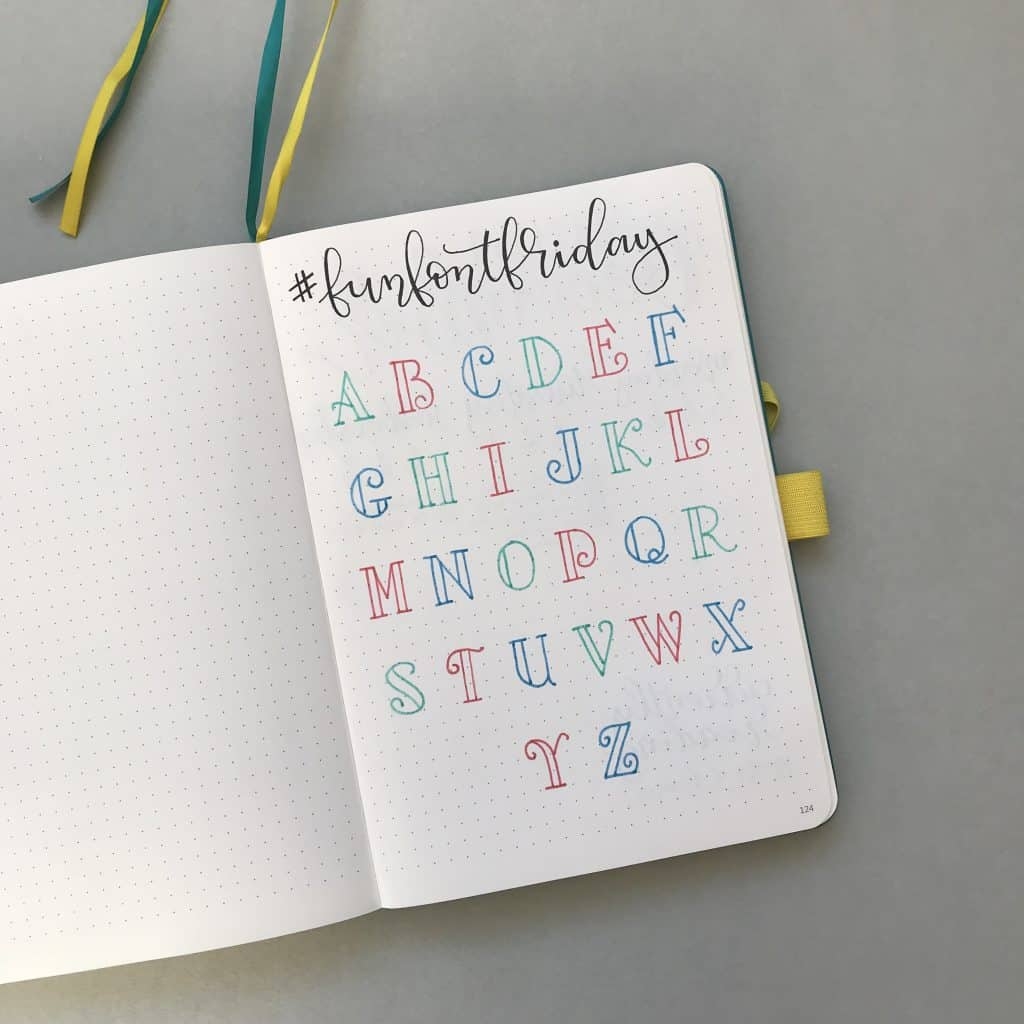 #funfontfriday
A B C D E F
G H I J K L
M N O P Q R
S T U V W X
Y Z
124